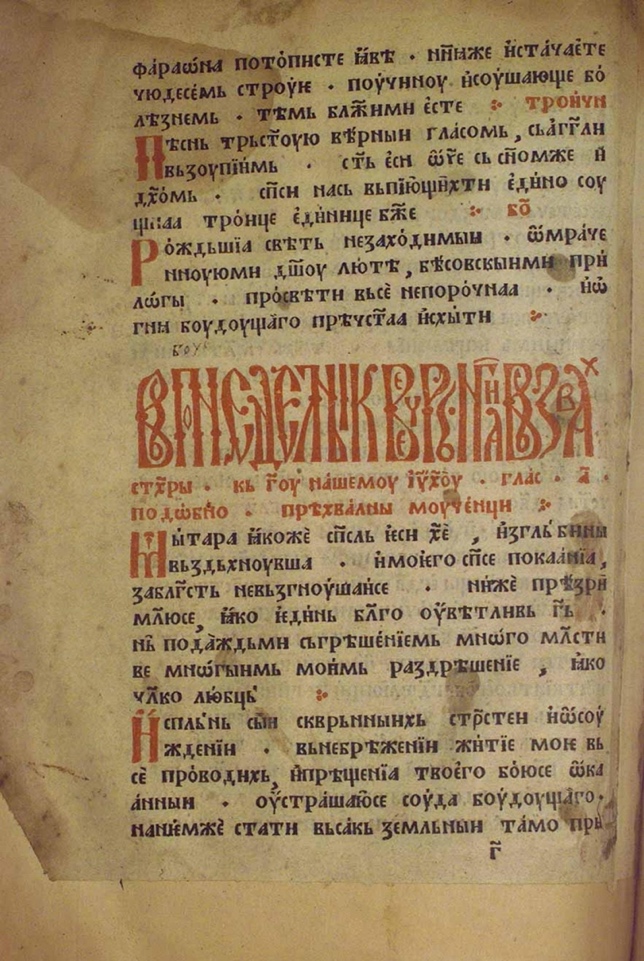 фараѡ́на пото́писте ꙗ҆́вѣ · нн҃ꙗже и҆ста́чаѥ҆те
чюдесе́мь строуѥ · поу́чинноу и҆соушающе бо́
лѣзнемь · тѣмь бл҃же́ими е҆сте ⁘ трои́чн
Пѣснь трьст҃о́ую вѣ́рныи гла́сомь , сьа́гг҃ли
вьзоупіи́мь · ст҃ь е҆си ѿч҃е сь сн҃омже и҆
дх҃ѡ́мь · сп҃си нась вьпію́щихти е҆ди́но соу
щнаа тро́ице е҆ди́нице бж҃е ⁘ бо҃
Ро́ждьшіа свѣ́ть незахо́димыи · ѿмра́че
нноуюми дш҃оу лютѣ , бѣ́совскыими при́
лѡ́гы · просвѣ́ти вьсѐ непоро́чнаа · и҆ѡ҆
гнꙗ боудоу́щаго прѣчⷭ҇таа и҆схы́ти ⁘
стх҃ры · кь гⷭ҇оу на́шемоу і҆ѵ҃ х҃оу · глас · а҃ ·
подѡ́бно · прѣхва́лны моу́ченци ⁘
Мы́тара ꙗ҆́коже сп҃сль ѥси хе҃ , и҆згльбины
вьздьхноувша · и҆моѥ́го сп҃се покаа́нїа ,
забл҃гⷭ҇сть невьзгноуша́исе · ни́же прѣ́зри
мл҃юсе , ꙗ҆́ко ѥди́нь бл҃го оувѣтливь гⷭ҇ь ·
нь пода́ждьми сьгрѣше́нїемь мнѡ́го млⷭ҇сти
ве мнѡ́гыимь мои́мь раздрѣшенїе , ꙗ҆́ко
чл҃ко лю́бць ⁘
И҆спль́нь сы́и скврьнныихь стрⷭ҇стеи и҆ѡ҆соу
жденїи · вьнебрѣженїи жи́тїе моѥ вь
сѐ про́водихь, и҆прѣщенїа твоѥ́го бо́юсе ѡ҆ка
а́нныи · оу҆страша́юсе соуда боудоущаго ·
нанѥ́мже стати вьса́кь земльныи та́мо при
г҃